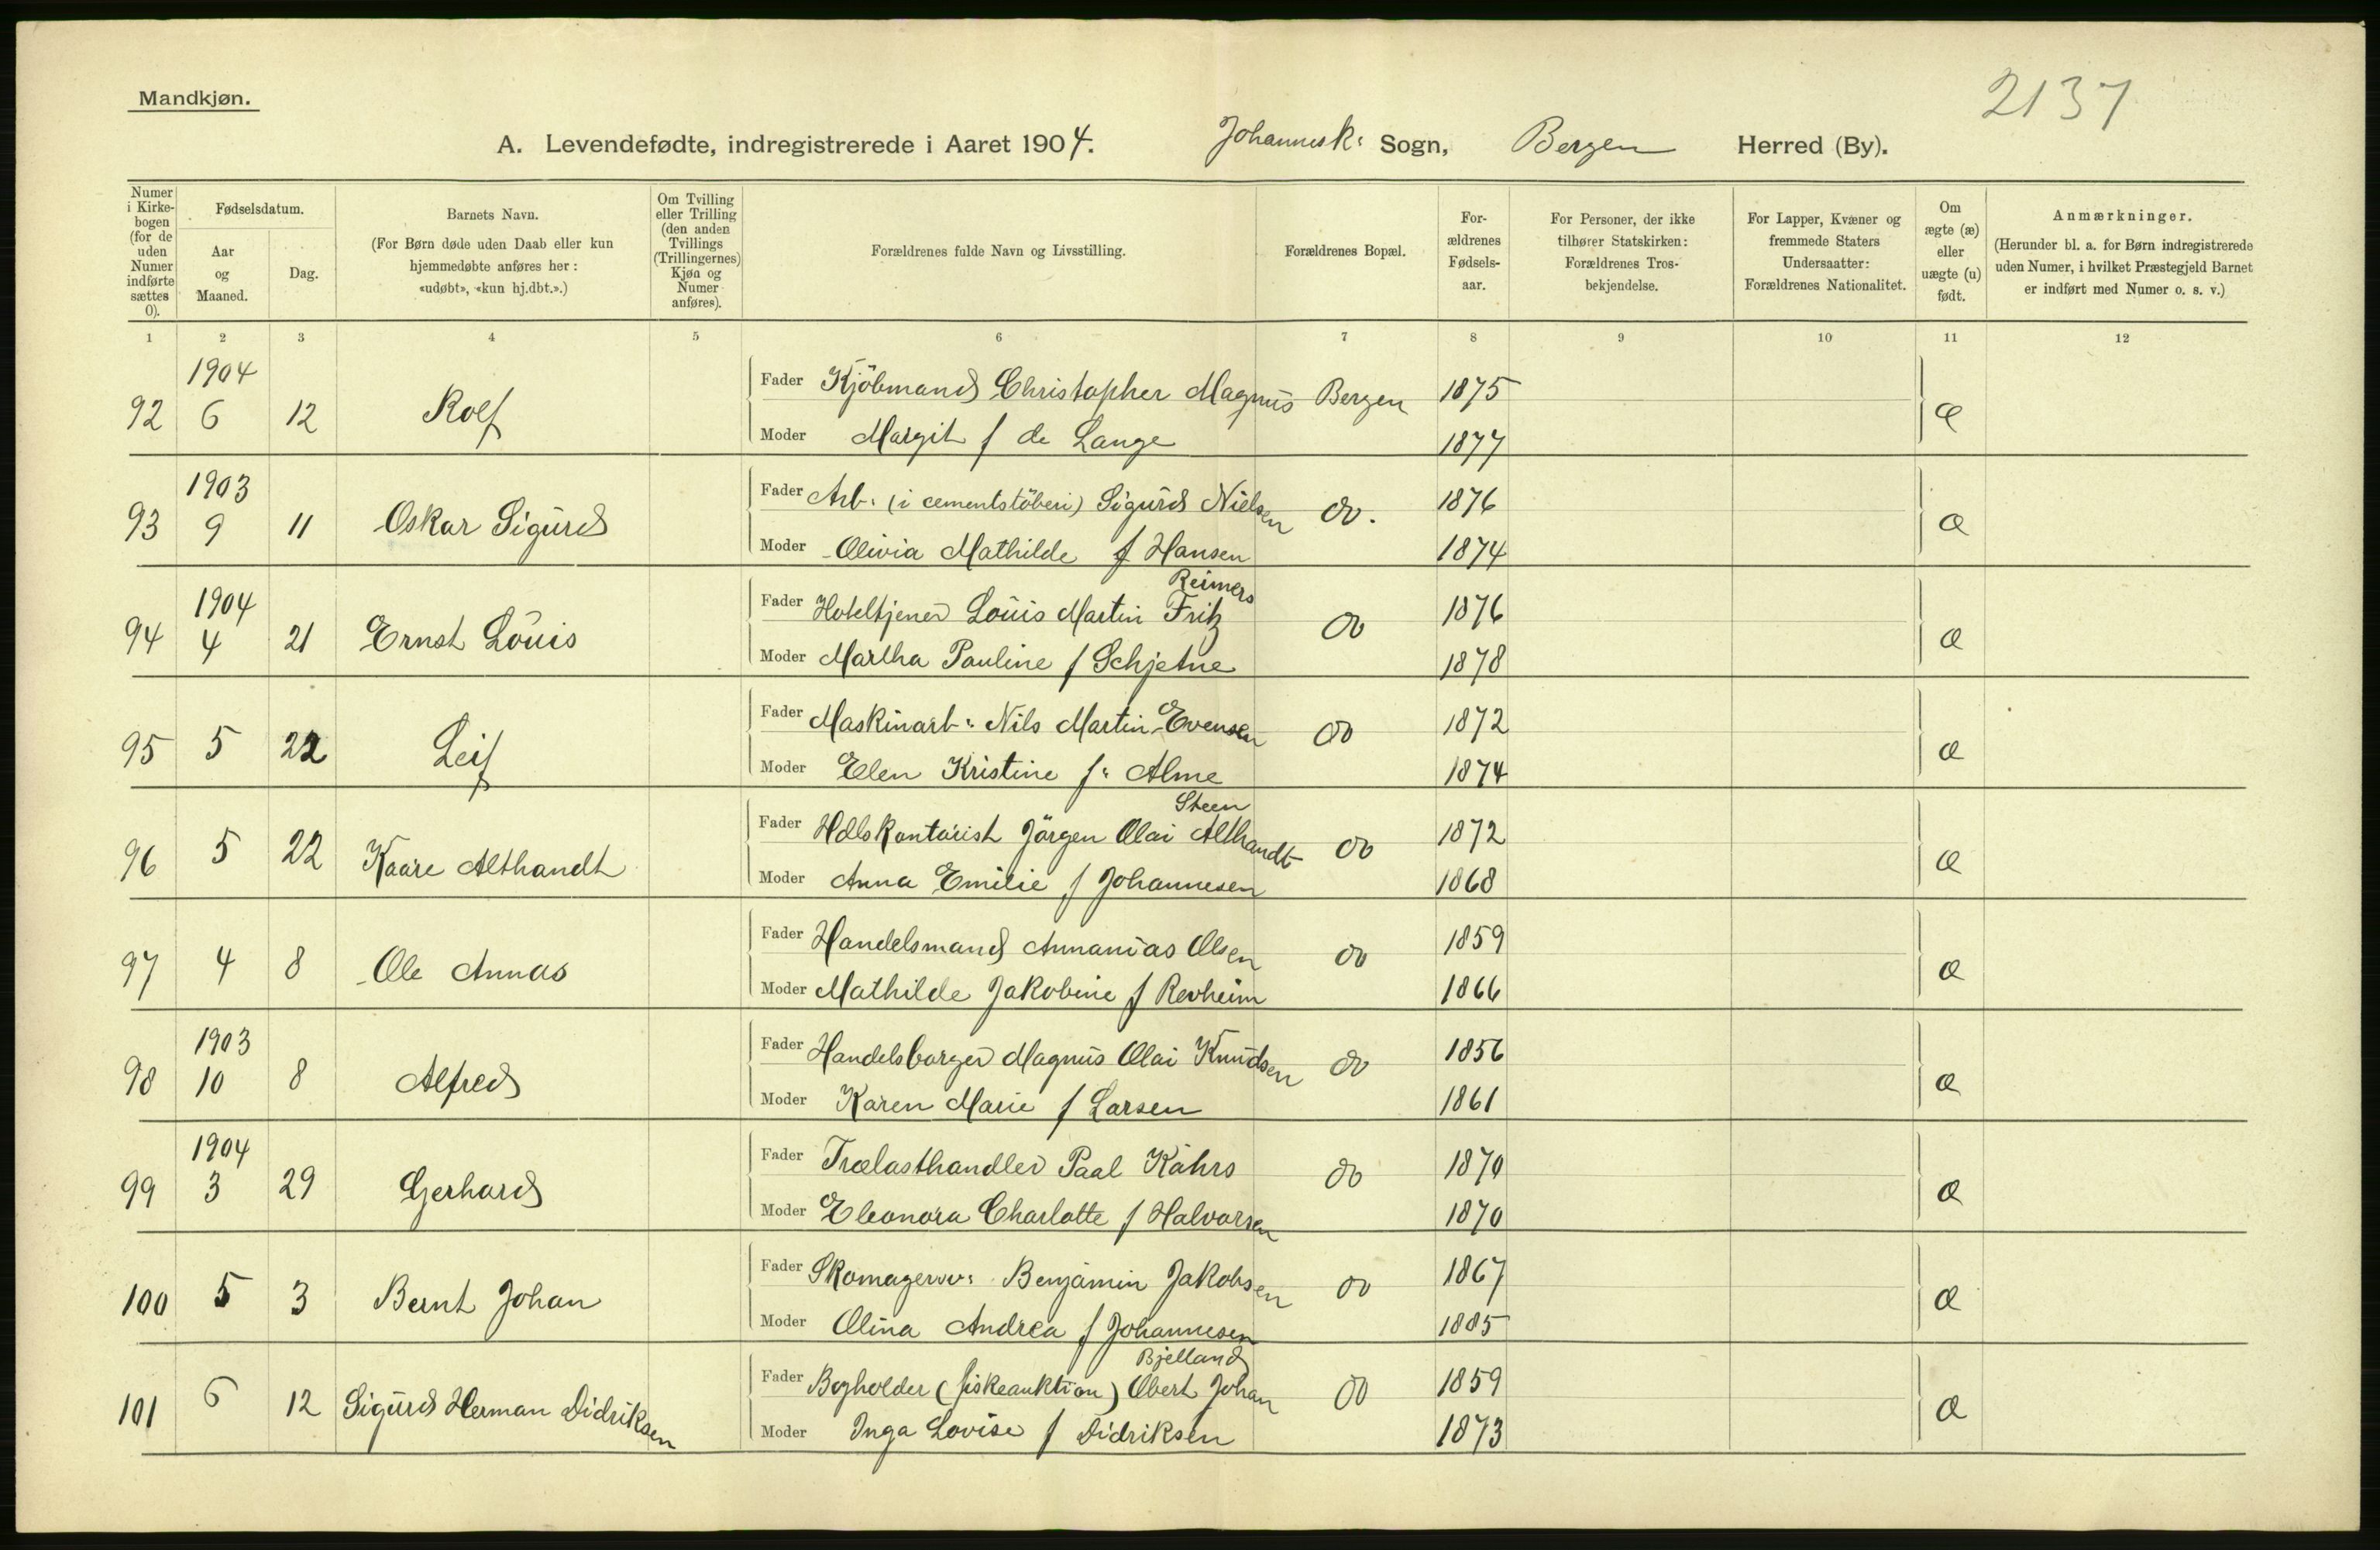 2137
Mandkjøn.
A. Levendefødte, indregistrerede i Aaret 1904. Johannesk: Sogn, Bergen Herred (By).
Numer i Kirkebogen (for de uden Numer indførte sættes 0).
Fødselsdatum.
Aar og Maaned.
Dag.
Barnets Navn.
(For Børn døde uden Daab eller kun hjemmedøbte anføres her: «udøbt», «kun hj.dbt.».)
Om Tvilling eller Trilling (den anden Tvillings (Trillingernes) Kjøn og Numer anføres).
Forældrenes fulde Navn og Livsstilling.
Forældrenes Bopæl.
Forældrenes Fødselsaar.
For Personer, der ikke tilhører Statskirken: Forældrenes Trosbekjendelse.
For Lapper, Kvæner og fremmede Staters Undersaatter: Forældrenes Nationalitet.
Om ægte (æ) eller uægte (u) født.
Anmærkninger.
(Herunder bl. a. for Børn indregistrerede uden Numer, i hvilket Præstegjeld Barnet er indført med Numer o. s. v.)
1 2 3 4 5 6 7 8 9 10 11 12
1904
92 6 12 Rolf Fader Kjöbmand Christopher Magnus Bergen 1875 æ
Moder Margit f de Lange 1877
1903
93 9 11 Oskar Sigurd Fader Arb. (i cementstöberi) Sigurd Nielsen do. 1876 æ
Moder Olivia Mathilde f Hansen 1874
Reimers
1904
94 4 21 Ernst Louis Fader Hoteltjener Louis Martin Fritz do 1876 æ
Moder Martha Pauline f Schjetne 1878
95 5 22 Leif Fader Maskinarb: Nils Martin Evensen do 1872 æ
Moder Elen Kristine f: Alme 1874
Steen
96 5 22 Kaare Althandt Fader Hdlskontorist Jörgen Olai Althandt do 1872 æ
Moder Anna Emilie f Johannesen 1868
97 4 8 Ole Annas Fader Handelsmand Annanias Olsen do 1859 æ
Moder Mathilde Jakobine f Revheim 1866
1903
98 10 8 Alfred Fader Handelsborger Magnus Olai Knudsen do 1856 æ
Moder Karen Marie f Larsen 1861
1904
99 3 29 Gerhard Fader Trælasthandler Paal Kahrs do 1870 æ
Moder Eleonora Charlotte f Halvorsen 1870
100 5 3 Bernt Johan Fader Skomagersv: Benjamin Jakobsen do 1867 æ
Moder Olina Andrea f Johannesen 1885
Bjelland
101 6 12 Sigurd Herman Didriksen Fader Bogholder (fiskeauktion) Obert Johan do 1859 æ
Moder Inga Lovise f Didriksen 1873